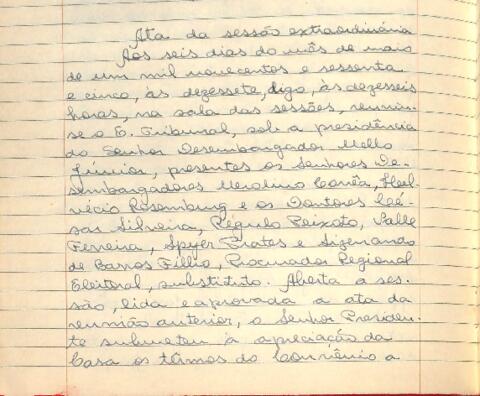 Ata da sessão extraordinária
Aos seis dias do mês de maio
de um mil novecentos e sessenta
e cinco, às dezessete, digo, às dezesseis
horas, na sala das sessões, reuniu-
se o E. Tribunal, sob a presidência
do Senhor Desembargador Mello
Júnior, presentes os Senhores De-
sembargadores Merolino Corrêa, Hel-
vécio Rosemburg e os Doutores Cé-
sar Silveira, Régulo Peixoto, Valle
Ferreira, Spyer Prates e Sizenando
de Barros Fillio, Procurador Regional
Eleitoral, substituto. Aberta a ses-
são, lida e aprovada a ata da
reunião anterior, o Senhor Presiden-
te submeteu à apreciação da
Casa os têrmos do Convênio a